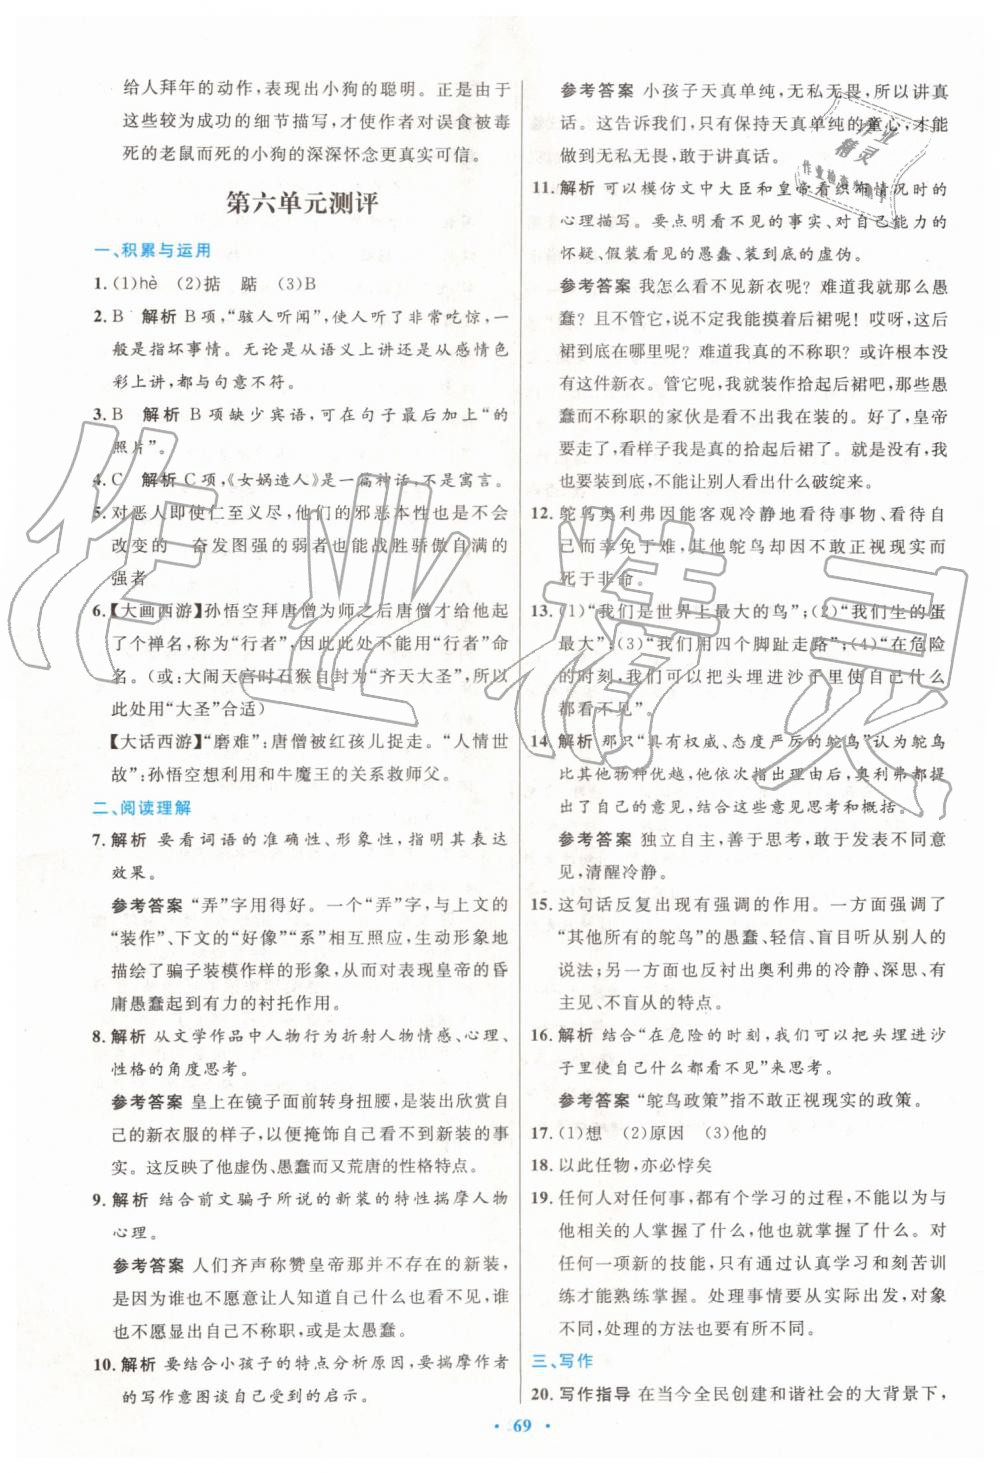 给人拜年的动作,表现出小狗的聪明。正是由于
这些较为成功的细节描写,才使作者对误食被毒
死的老鼠而死的小狗的深深怀念更真实可信。
第六单元测评
一、积累与运用
1. (1)hè (2)掂 踮 (3)B
2. B 解析 B项,“骇人听闻”,使人听了非常吃惊,一
般是指坏事情。无论是从语义上讲还是从感情色
彩上讲,都与句意不符。
3. B 解析 B项缺少宾语,可在句子最后加上“的
照片”。
4. C 解析 C项,《女娲造人》是一篇神话,不是寓言。
5. 对恶人即使仁至义尽,他们的邪恶本性也是不会
改变的 奋发图强的弱者也能战胜骄傲自满的
强者
6.【大画西游】孙悟空拜唐僧为师之后唐僧才给他起
了个禅名,称为“行者”,因此此处不能用“行者”命
名。(或:大闹天宫时石猴自封为“齐天大圣”,所以
此处用“大圣”合适)
【大话西游】“磨难”:唐僧被红孩儿捉走。“人情世
故”:孙悟空想利用和牛魔王的关系救师父。
二、阅读理解
7. 解析 要看词语的准确性、形象性,指明其表达
效果。
参考答案 “弄”字用得好。一个“弄”字,与上文的
“装作”、下文的“好像”“系”相互照应,生动形象地
描绘了骗子装模作样的形象,对表现皇帝的昏
庸愚蠢起到有力的衬托作用。
8. 解析 从文学作品中人物行为折射人物情感、心理、
性格的角度思考。
参考答案 皇上在镜子面前转身扭腰,是装出欣赏自
己的新衣服的样子,以便掩饰自己看不到新装的事
实。这反映了他虚伪、愚蠢而又荒唐的性格特点。
9. 解析 结合前文骗子所说的新装的特性揣摩人物
心理。
参考答案 人们齐声称赞皇帝那并不存在的新装,
是因为谁也不愿意让人知道自己什么也看不见,谁
也不愿显出自己不称职,或是太愚蠢。
10. 解析 要结合小孩子的特点分析原因,要揣摩作者
的写作意图谈自己受到的启示。
参考答案 小孩子天真单纯,无私无畏,所以讲真
话。这告诉我们,只有保持天真单纯的童心,才能
做到无私无畏,敢于讲真话。
11. 解析 可以模仿文中大臣和皇帝看织布情况时的
心理描写。要点明看不见的事实、对自己能力的
怀疑、假装看见的愚蠢、装到底的虚伪。
参考答案 我怎么看不见新衣呢?难道我就那么愚
蠢?且不管它,先尽量摸着后裙吧!哎呀,这后
裙到底在哪里呢?难道我真的不称职?或许根本
没有这件新衣。管它呢,我就装作拾起后裙吧,那些愚
蠢而不称职的家伙是看不出我在装的。好了,皇帝
要走了,看样子我是真的拾起后裙了。就是没有,我
也要装到底,不能让别人看出什么破绽来。
12. 鸵鸟奥利弗因能客观冷静地看待事物、看待自
己而幸免于难,其他鸵鸟却因不敢正视现实而
死于非命。
13. (1)“我们是世界上最大的鸟”;(2)“我们生的蛋
最大”;(3)“我们用四个脚趾走路”;(4)“在危险
的时刻,我们可以把头埋进沙子里使自己什么
都看不见”。
14. 解析 那只“具有权威、态度严厉的鸵鸟”认为鸵鸟
比其他物种优越,他依次指出理由后,奥利弗都提出
了自己的意见,结合这些意见思考和概括。
参考答案 独立自主,善于思考,敢于发表不同意
见,清醒冷静。
15. 这句话反复出现有强调的作用。一方面强调了
“其他所有的鸵鸟”的愚蠢、轻信、盲目听从别人的
说法;另一方面也反衬出奥利弗的冷静、深思、有
主见、不盲从的特点。
16. 解析 结合“在危险的时刻,我们可以把头埋进沙
子里使自己什么都看不见”来思考。
参考答案 “鸵鸟政策”指不敢正视现实的政策。
17. (1)想 (2)原因 (3)他的
18. 以此任物,亦必悖矣
19. 任何人对任何事,都有个学习的过程,不能以为与
他相关的人掌握了什么,他也就掌握了什么。对
任何一项新的技能,都要通过认真学习和刻苦训
练才能熟练掌握。处理事情要从实际出发,对象
不同,处理的方法也要有所不同。
三、写作
20. 写作指导 在当今全民创建和谐社会的大背景下,
• 69 •
作业精灵